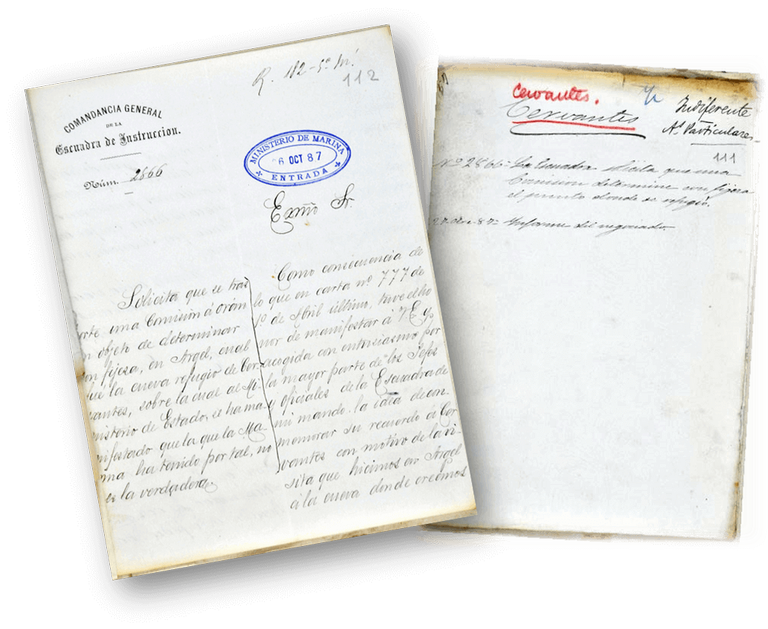 R. 182-5ª M.
112
COMANDANCIA GENERAL
DE LA
Escuadra de Instruccion.
Núm. 2866
MINISTERIO DE MARINA
6 OCT 87
ENTRADA
Exmo Sr.
Solicita que se tras
porte una Comisión á Orán
n objeto de determinar
on fijeza, en Argel, cual
ue la cueva refugio de Cer
vantes, sobre la cual al Mi
nisterio de Estado, se ha ma
nifestado que la que la Ma
rina ha tenido por tal, no
es la verdadera.
Como consecuencia de
lo que en carta nº 777 de
1º de Abril último, tuve el ho
nor de manifestar á V.E. y
acogida con entusiasmo por
la mayor parte de los Jefes
y oficiales de la Escuadra de
mi mando, la idea de con
memorar un recuerdo á Cer
vantes con motivo de la vi
sita que hicimos en Argel
á la cueva donde creemos
Cervantes.
Cervantes
Indiferente
Aº Particulares
111
Nº 2866 - La Escuadra solicita que una
Comision determine con fijeza
el punto donde se refugió.
87 - Informe del negociado.